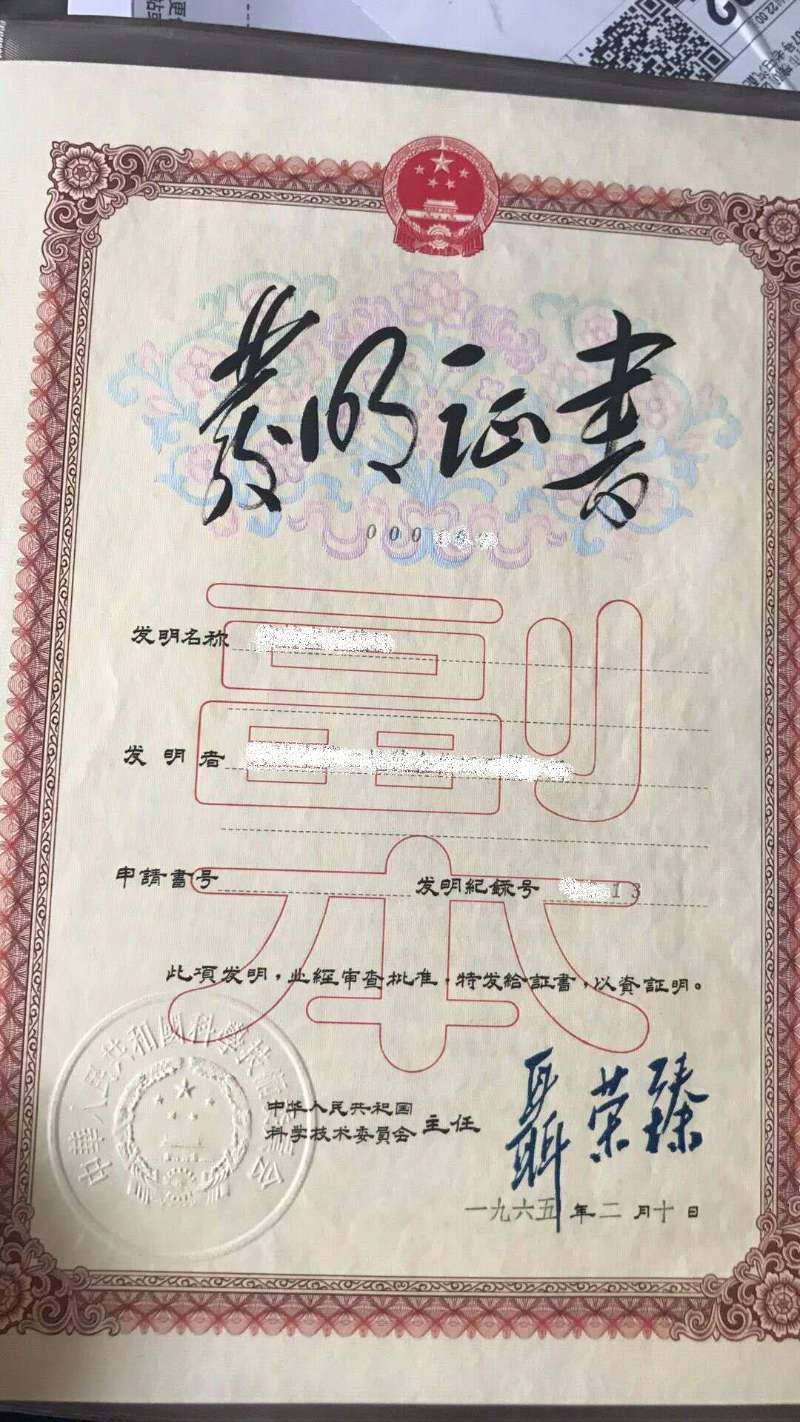 發明证書
000
副
发明名称
发明者
申請書号 发明紀錄号 13
本
此項发明,业經审查批准,特发給証書,以資証明。
中華人民共和國科學技術委員會
中华人民共和国
科学技术委員会 主任 聂荣臻
一九六五年二月十日